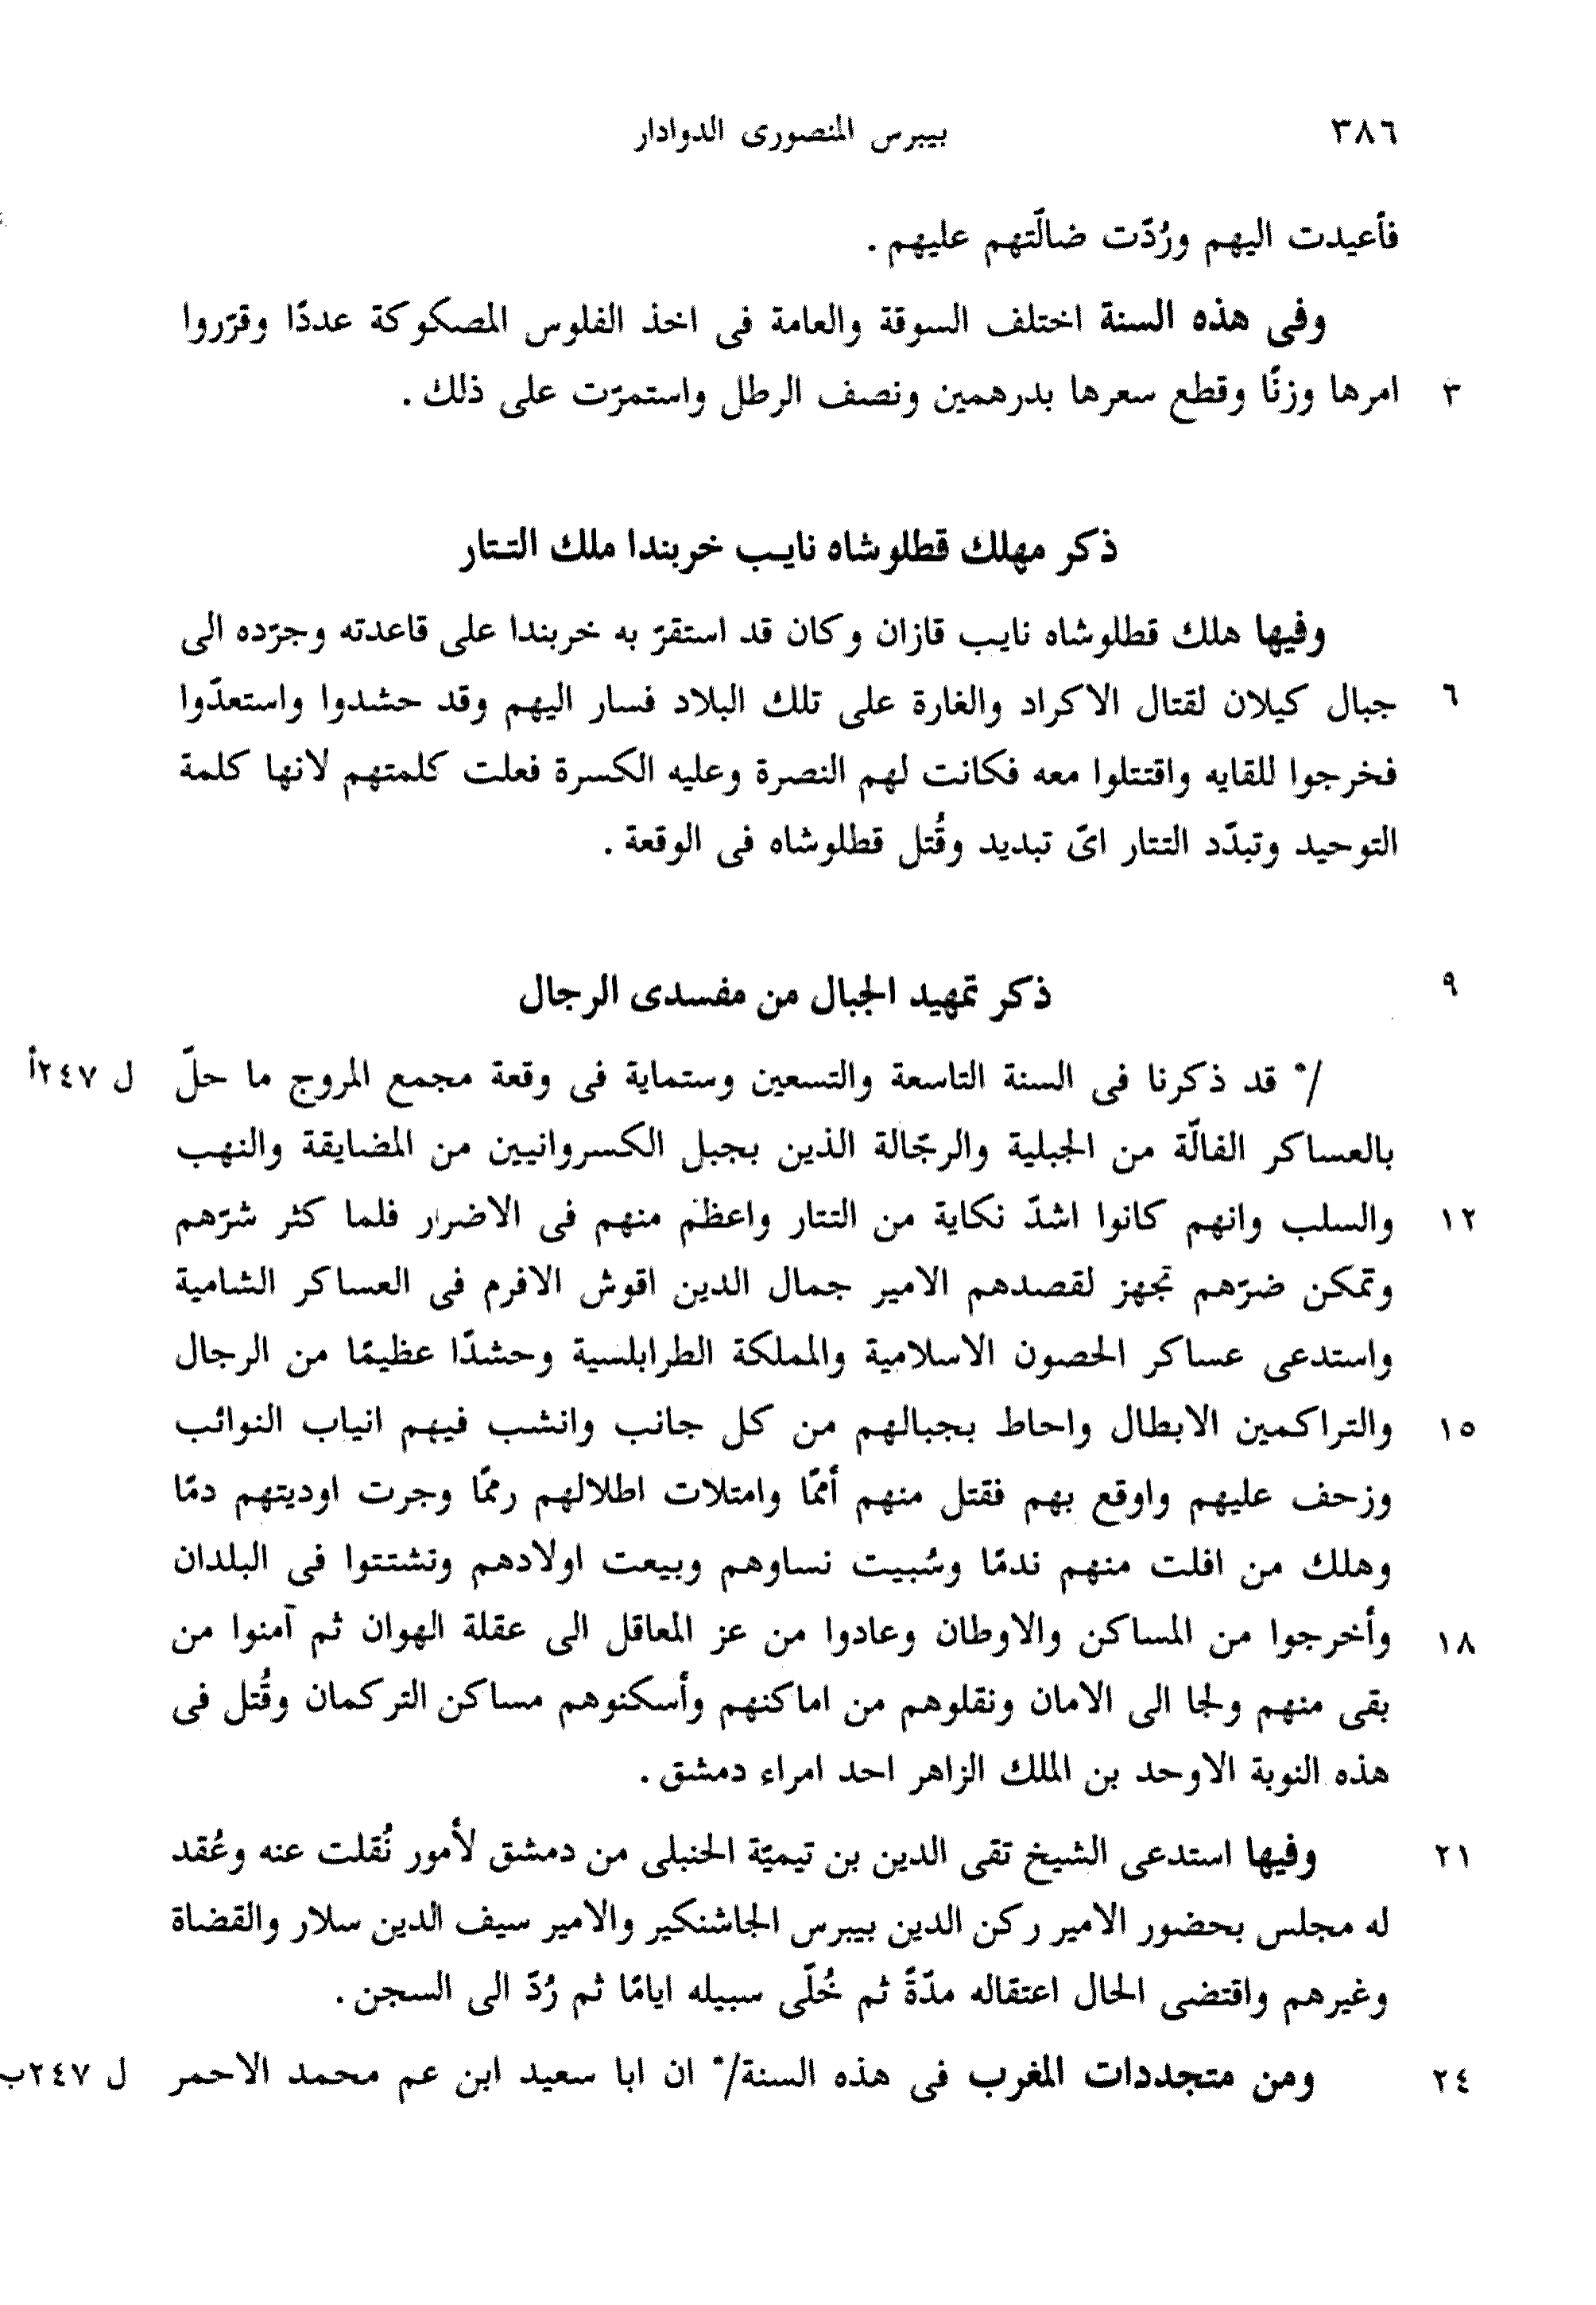 ٣٨٦ بيبرس المنصورى الدوادار
فأعيدت اليهم ورُدّت ضالّتهم عليهم .
وفى هذه السنة اختلف السوقة والعامة فى اخذ الفلوس المصكوكة عددًا وقرّروا
٣ امرها وزنًا وقطع سعرها بدرهمين ونصف الرطل واستمرّت على ذلك .
ذكر مهلك قطلوشاه نايب خربندا ملك التتار
وفيها هلك قطلوشاه نايب قازان وكان قد استقرّ به خربندا على قاعدته وجرّده الى
٦ جبال كيلان لقتال الاكراد والغارة على تلك البلاد فسار اليهم وقد حشدوا واستعدّوا
فخرجوا للقايه واقتتلوا معه فكانت لهم النصرة وعليه الكسرة فعلت كلمتهم لانها كلمة
التوحيد وتبدّد التتار اىّ تبديد وقُتل قطلوشاه فى الوقعة .
٩ ذكر تمهيد الجبال من مفسدى الرجال
/* قد ذكرنا فى السنة التاسعة والتسعين وستماية فى وقعة مجمع المروج ما حلّ ل ٢٤٧أ
بالعساكر الفالّة من الجبلية والرجّالة الذين بجبل الكسروانيين من المضايقة والنهب
١٢ والسلب وانهم كانوا اشدّ نكاية من التتار واعظم منهم فى الاضرار فلما كثر شرّهم
وتمكن ضرّهم تجهز لقصدهم الامير جمال الدين اقوش الافرم فى العساكر الشامية
واستدعى عساكر الحصون الاسلامية والمملكة الطرابلسية وحشدًا عظيمًا من الرجال
١٥ والتراكمين الابطال واحاط بجبالهم من كل جانب وانشب فيهم انياب النوائب
وزحف عليهم واوقع بهم فقتل منهم أممًا وامتلات اطلالهم رممًا وجرت اوديتهم دمًا
وهلك من افلت منهم ندمًا وسُبيت نساوهم وبيعت اولادهم وتشتتوا فى البلدان
١٨ وأخرجوا من المساكن والاوطان وعادوا من عز المعاقل الى عقلة الهوان ثم آمنوا من
بقى منهم ولجا الى الامان ونقلوهم من اماكنهم وأسكنوهم مساكن التركمان وقُتل فى
هذه النوبة الاوحد بن الملك الزاهر احد امراء دمشق .
٢١ وفيها استدعى الشيخ تقى الدين بن تيميّة الحنبلى من دمشق لأمور نُقلت عنه وعُقد
له مجلس بحضور الامير ركن الدين بيبرس الجاشنكير والامير سيف الدين سلار والقضاة
وغيرهم واقتضى الحال اعتقاله مدّةً ثم خُلّى سبيله ايامًا ثم رُدّ الى السجن .
٢٤ ومن متجددات المغرب فى هذه السنة/* ان ابا سعيد ابن عم محمد الاحمر ل ٢٤٧ب